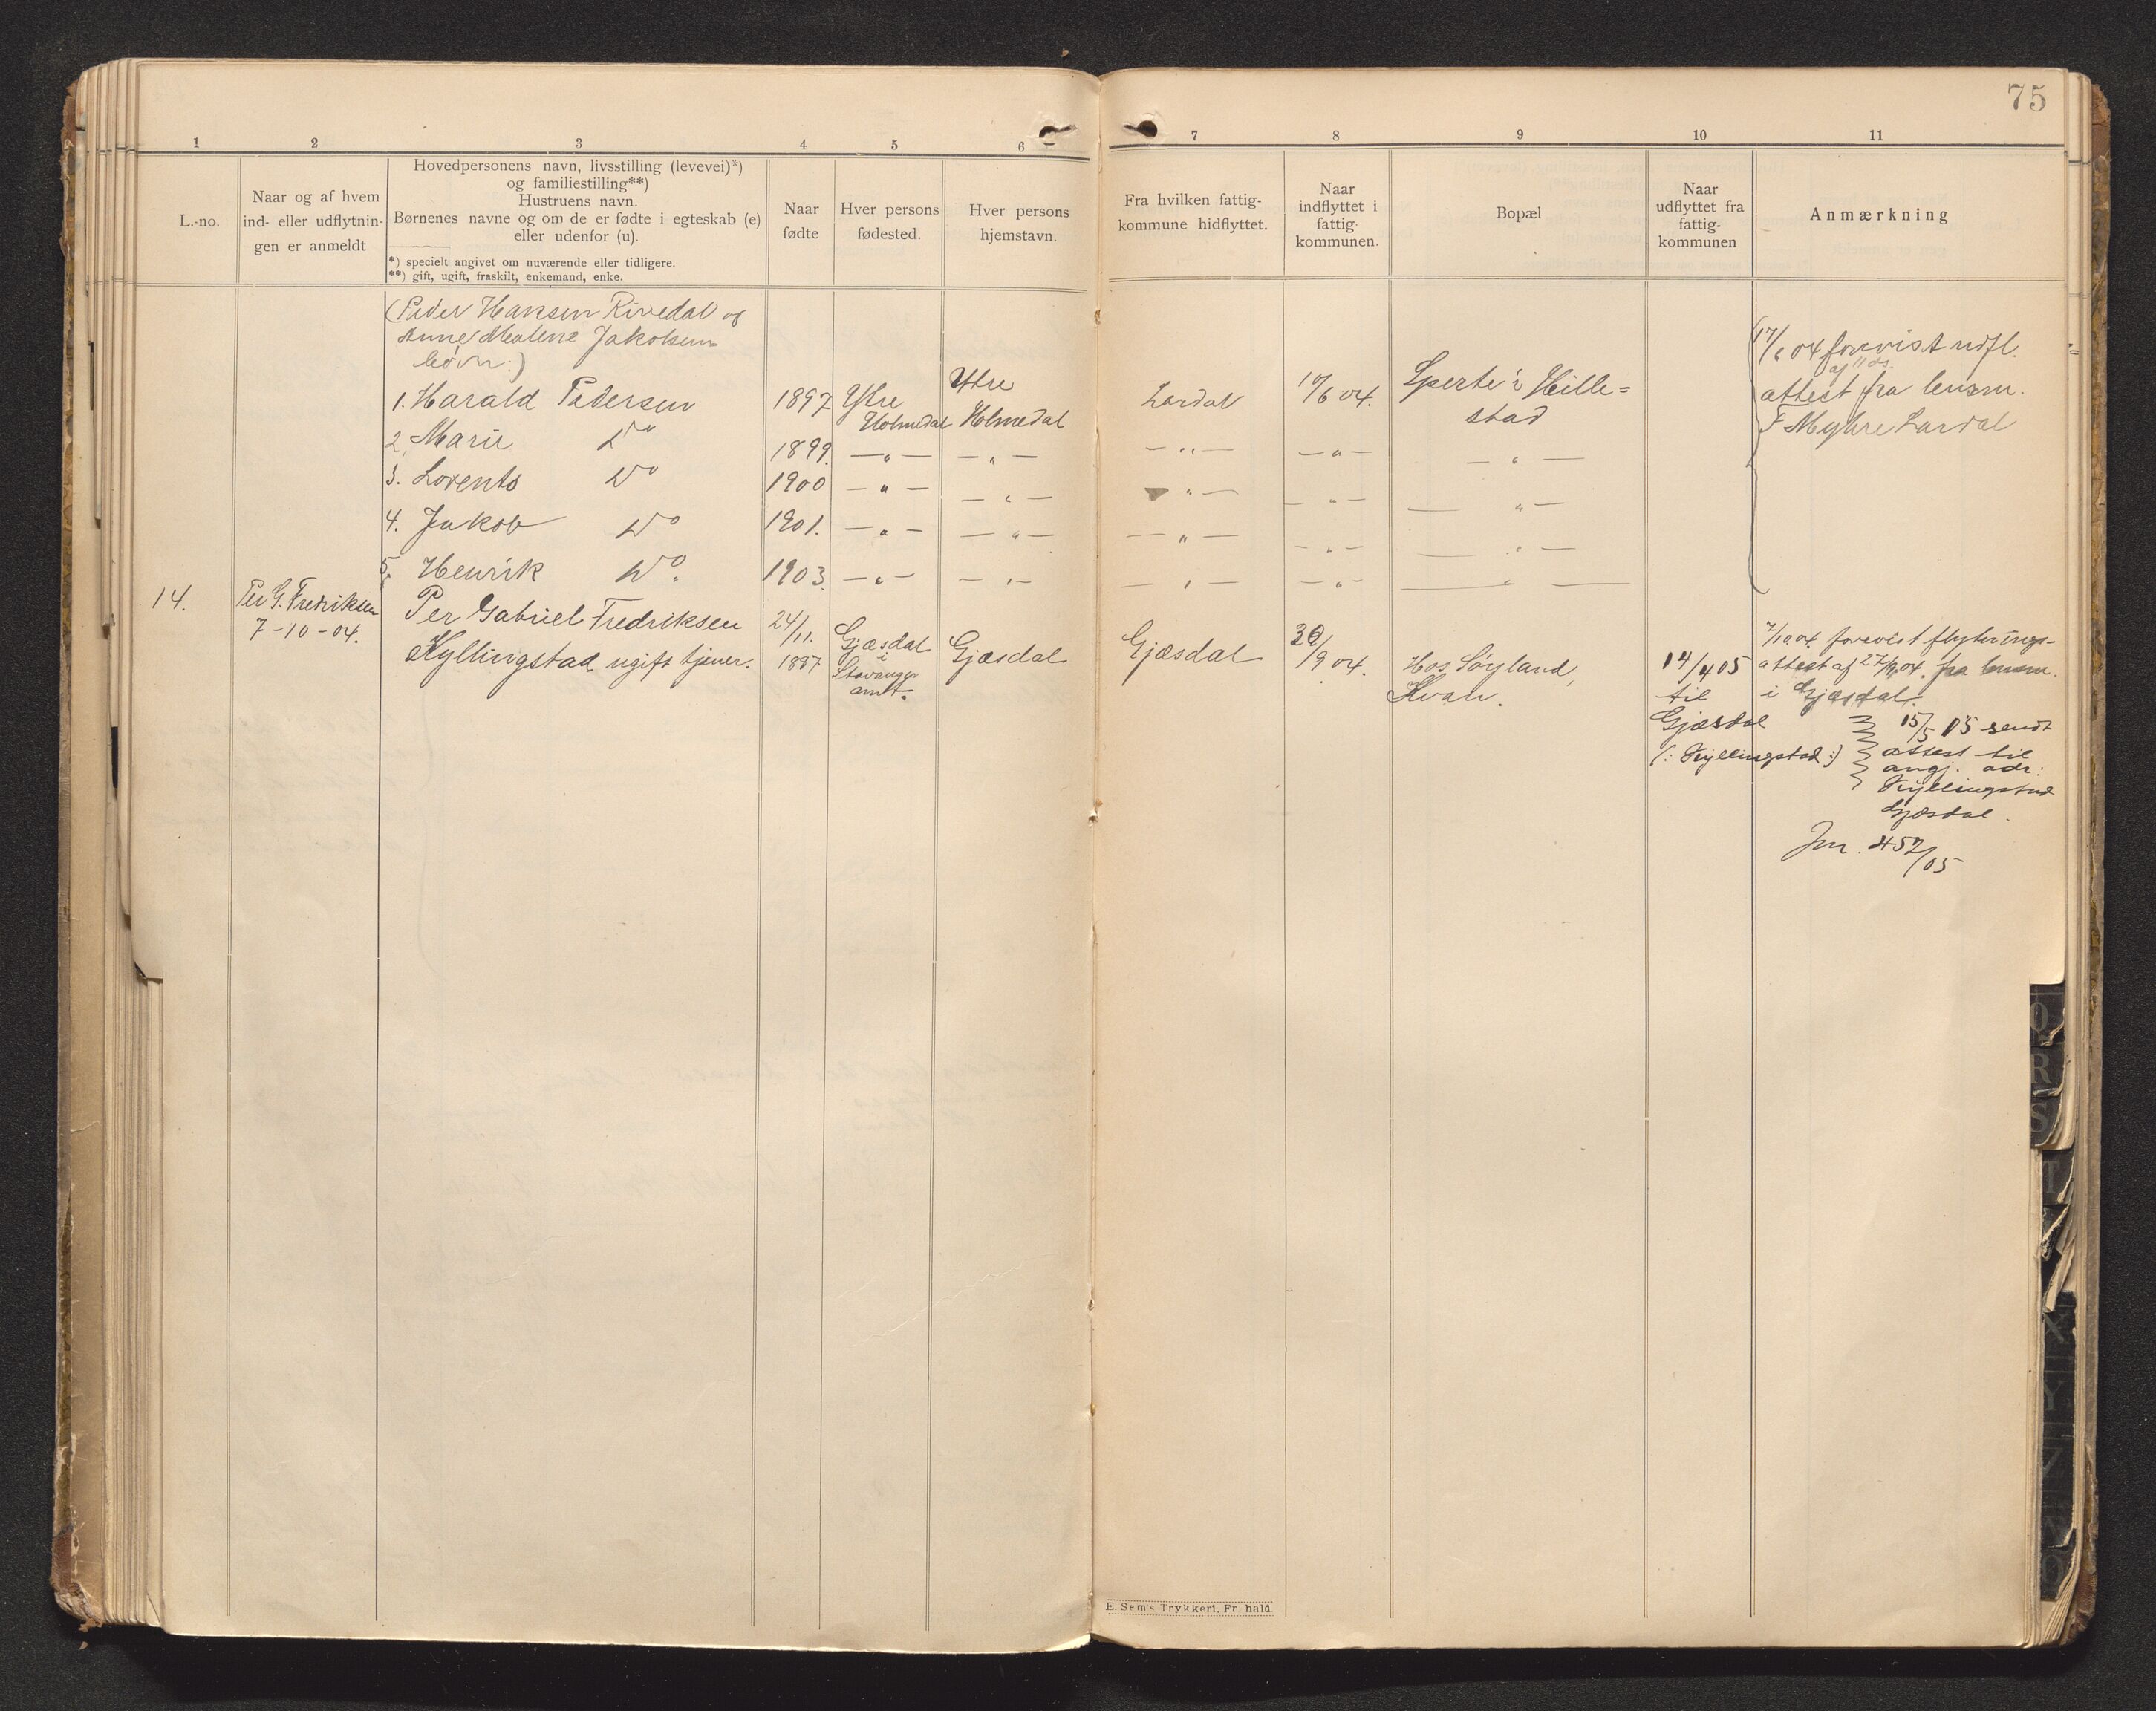 75
1 2 3 4 5 6 7 8 9 10 11
L.-no.
Naar og af hvem
ind- eller udflytnin-
gen er anmeldt
Hovedpersonens navn, livsstilling (levevei)*)
og familiestilling**)
Hustruens navn.
Børnenes navne og om de er fødte i egteskab (e)
eller udenfor (u).
*) specielt angivet om nuværende eller tidligere.
**) gift, ugift, fraskilt, enkemand, enke.
Naar
fødte
Hver persons
fødested.
Hver persons
hjemstavn.
Fra hvilken fattig-
kommune hidflyttet.
Naar
indflyttet i
fattig-
kommunen.
Bopæl
Naar
udflyttet fra
fattig-
kommunen
Anmærkning
(Peder Hansen Rivedal og
Anne Malene Jakobsens
børn:)
1. Harald Pedersen
1897
Ytre
Holmedal
Ytre
Holmedal
Lardal
10/6 04.
i Hille=
stad
17/6 04 forevist udfl.
af 11 ds.
attest fra lensm.
F Myhre Lardal
2. Marie Do
1899. — " — — " — — " — — " — — " —
3. Lorents Do
1900 — " — — " — — " — — " — — " —
4. Jakob Do
1901. — " — — " — — " — — " — — " —
5. Henrik Do.
1903. — " — — " — — " — — " — — " —
14.
Per G. Fredriksen
7-10-04.
Per Gabriel Fredriksen
Kyllingstad ugift tjener.
24/11.
1887
Gjæsdal
i
Stavanger
amt.
Gjæsdal
Gjæsdal
30/9 04.
Hos Söyland,
Kvan.
14/4 05
til
Gjæsdal
(: Kyllingstad :)
7/10 04 forevist flytnings-
attest af 27/9 04. fra lensm.
i Gjæsdal.
15/5 05 sendt
attest til
angj. adr:
Kyllingstad
Gjæsdal.
Jnr. 457/05
O
R
S
T
X
Y
E. Sem's Trykkeri, Fr.hald.